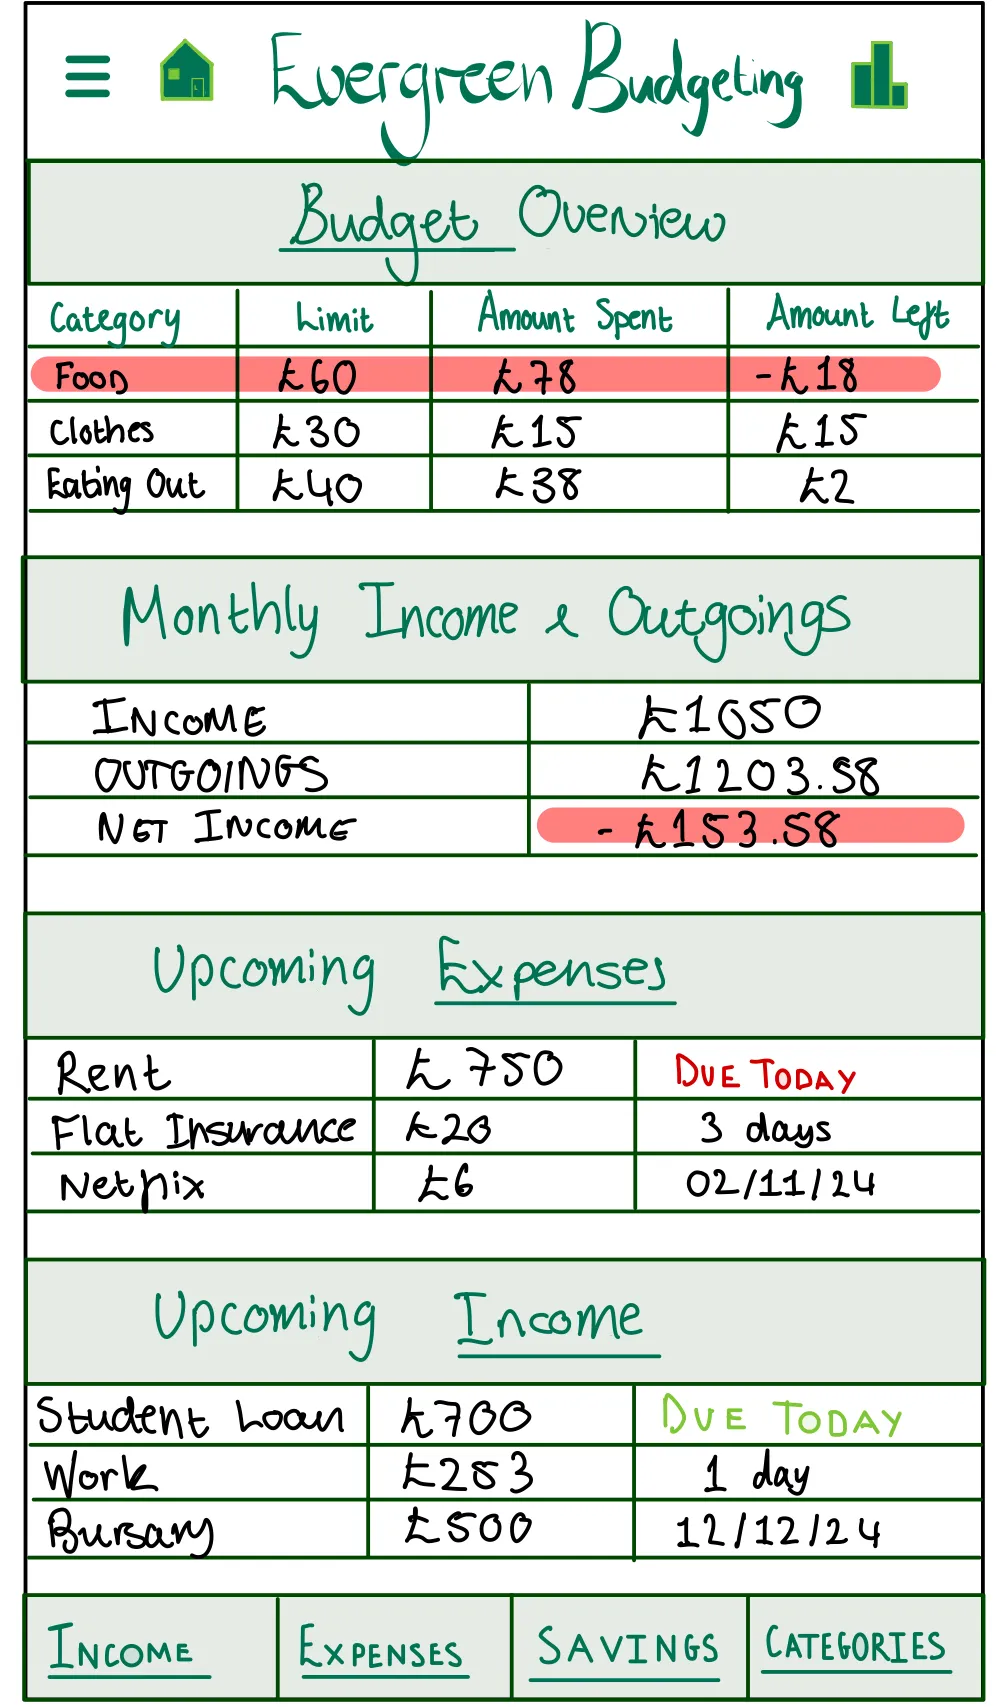 Evergreen Budgeting
Budget Overview
Category Limit Amount Spent Amount Left
FOOD £60 £78 -£18
Clothes £30 £15 £15
Eating Out £40 £38 £2
Monthly Income & Outgoings
INCOME £1050
OUTGOINGS £1203.58
NET INCOME - £153.58
Upcoming Expenses
Rent £750 DUE TODAY
Flat Insurance £20 3 days
Netflix £6 02/11/24
Upcoming Income
Student Loan £700 DUE TODAY
Work £253 1 day
Bursary £500 12/12/24
INCOME EXPENSES SAVINGS CATEGORIES